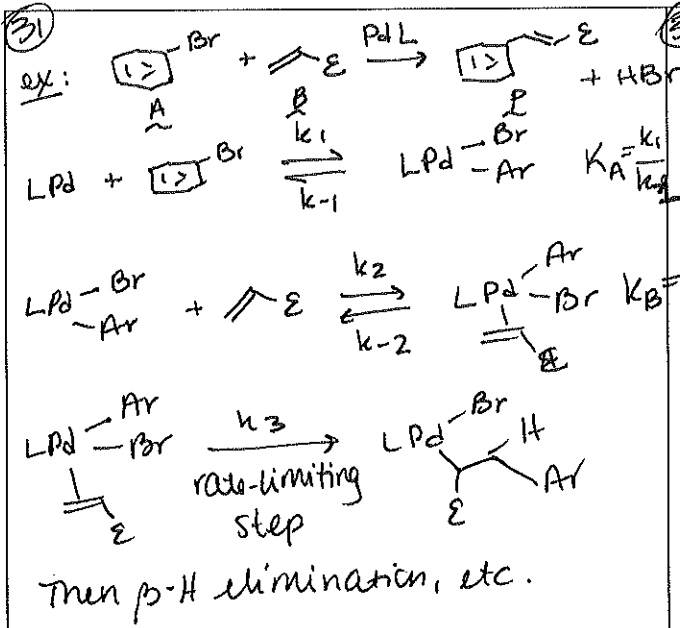 31
ex: Br + E PdL → E + HBr
A B P
LPd + Br k1 ⇌ k-1 LPd Br Ar KA = k1
LPd Br Ar + E k2 ⇌ k-2 LPd Ar Br KB =
LPd Ar Br E k3 → LPd Br H Ar E
rate-limiting
step
Then β-H elimination, etc.